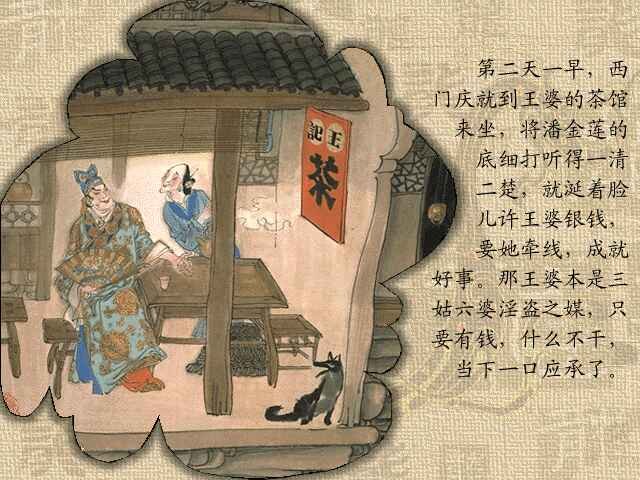 第二天一早，西
门庆就到王婆的茶馆
来坐，将潘金莲的
底细打听得一清
二楚，就涎着脸
儿许王婆银钱，
要她牵线，成就
好事。那王婆本是三
姑六婆淫盗之媒，只
要有钱，什么不干，
当下一口应承了。
王记
茶